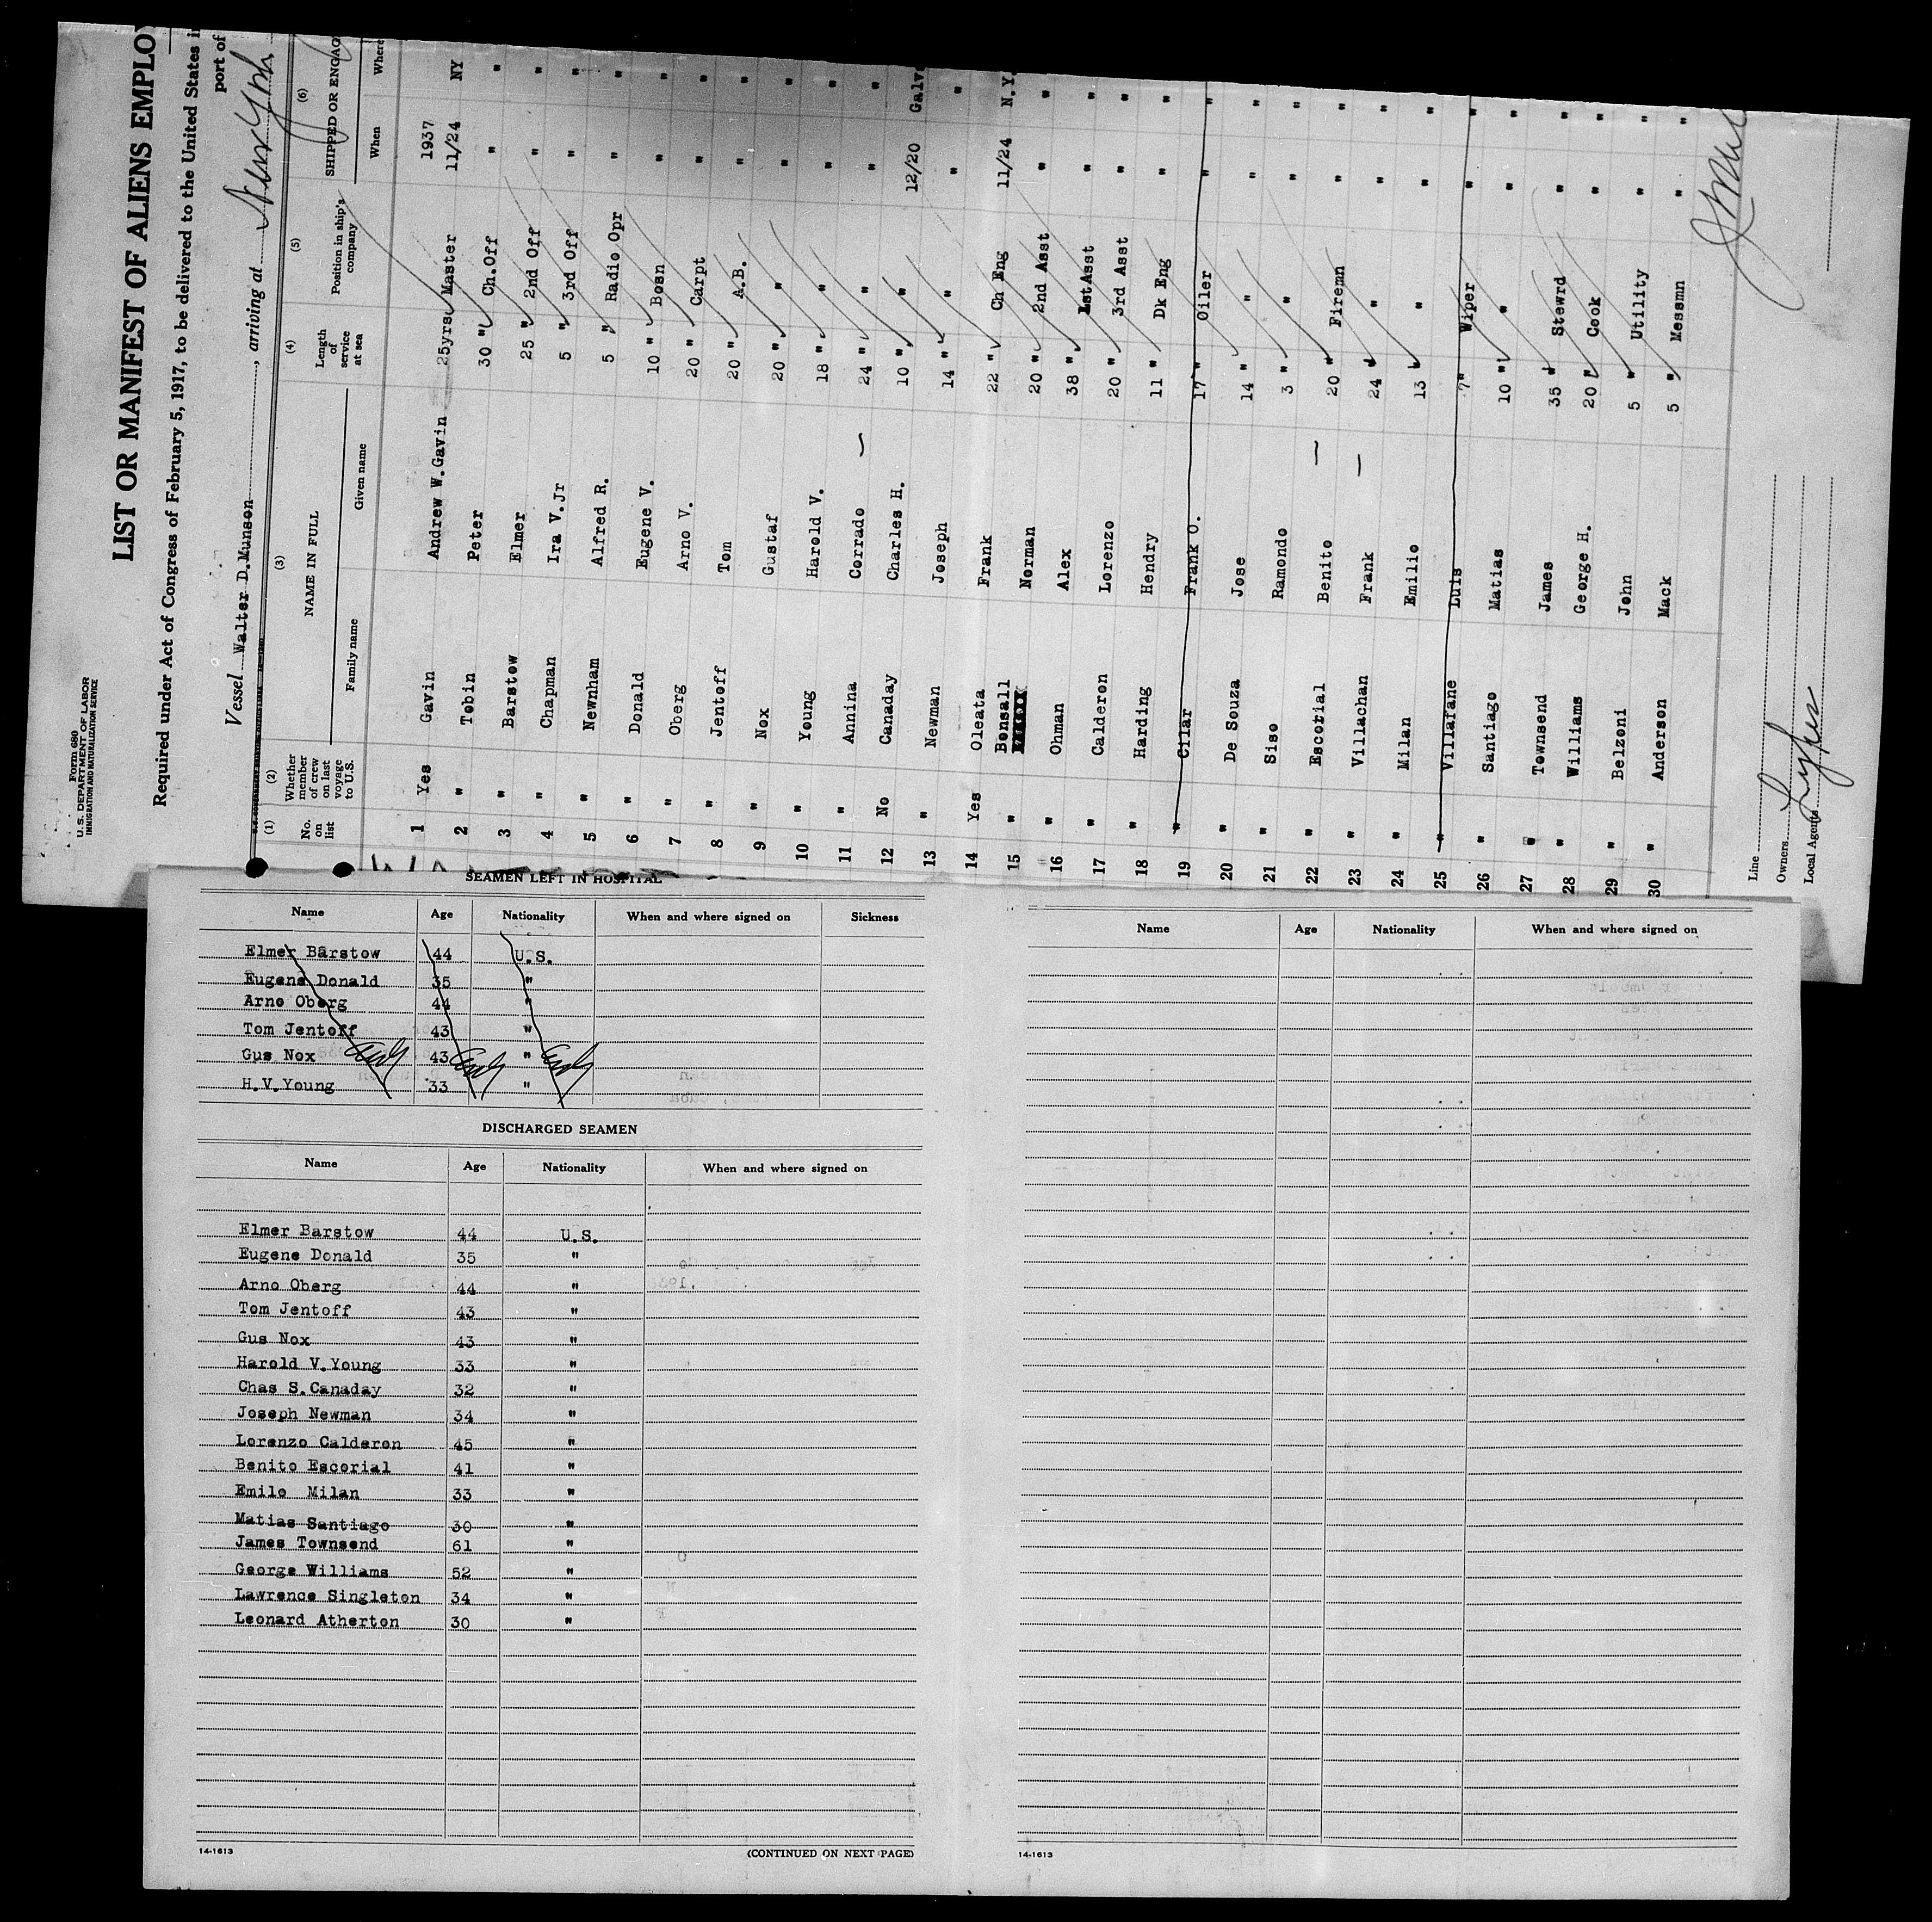 Form 680
U. S. DEPARTMENT OF LABOR
IMMIGRATION AND NATURALIZATION SERVICE
LIST OR MANIFEST OF ALIENS EMPLO
Required under Act of Congress of February 5, 1917, to be delivered to the United States i
port of
Vessel Walter D.Munson, arriving at New York
(1) (2) (3) (4) (5) (6)
No. on list Whether member of crew on last voyage to U.S. NAME IN FULL Length of service at sea Position in ship's company SHIPPED OR ENGAG
Family name Given name When Where
1937
1 Yes Gavin Andrew W.Gavin 25yrs Master 11/24 NY
2 " Tobin Peter 30 " Ch.Off " "
3 " Barstow Elmer 25 " 2nd Off " "
4 " Chapman Ira V.Jr 5 " 3rd Off " "
5 " Newnham Alfred R. 5 " Radio Opr " "
6 " Donald Eugene V. 10 " Bosn " "
7 " Oberg Arno V. 20 " Carpt " "
8 " Jentoff Tom 20 " A.B. " "
9 " Nox Gustaf 20 " " " "
10 " Young Harold V. 18 " " " "
11 " Annina Corrado 24 " " " "
12 No Canaday Charles H. 10 " " 12/20 Galv
13 " Newman Joseph 14 " " " "
14 Yes Oleata Frank 22 " Ch Eng 11/24 N.Y.
15 " Bonsall Norman 20 " 2nd Asst " "
16 " Ohman Alex 38 " 1stAsst " "
17 " Calderon Lorenzo 20 " 3rd Asst " "
18 " Harding Hendry 11 " Dk Eng " "
19 " Cilar Frank O. 17 " Oiler " "
20 " De Souza Jose 14 " " " "
21 " Siso Ramondo 3 " " " "
22 " Escorial Benito 20 " Firemn " "
23 " Villachan Frank 24 " " " "
24 " Milan Emilio 13 " " " "
25 " Villafane Luis 7" Wiper " "
26 " Santiago Matias 10 " " " "
27 " Townsend James 35 " Stewrd " "
28 " Williams George H. 20 " Cook " "
29 " Belzoni John 5 " Utility " "
30 " Anderson Mack 5 " Messmn " "
Line
Owners
Local Agents Lykes
SEAMEN LEFT IN HOSPITAL
Name Age Nationality When and where signed on Sickness
Elmer Barstow 44 U.S.
Eugene Donald 35 "
Arno Oberg 44 "
Tom Jentoff 43 "
Gus Nox 43 "
H.V.Young 33 "
DISCHARGED SEAMEN
Name Age Nationality When and where signed on
Elmer Barstow 44 U.S.
Eugene Donald 35 "
Arno Oberg 44 "
Tom Jentoff 43 "
Gus Nox 43 "
Harold V.Young 33 "
Chas S.Canaday 32 "
Joseph Newman 34 "
Lorenzo Calderon 45 "
Benito Escorial 41 "
Emilo Milan 33 "
Matias Santiago 30 "
James Townsend 61 "
George Williams 52 "
Lawrence Singleton 34 "
Leonard Atherton 30 "
14-1613
(CONTINUED ON NEXT PAGE)
Name Age Nationality When and where signed on
14-1613